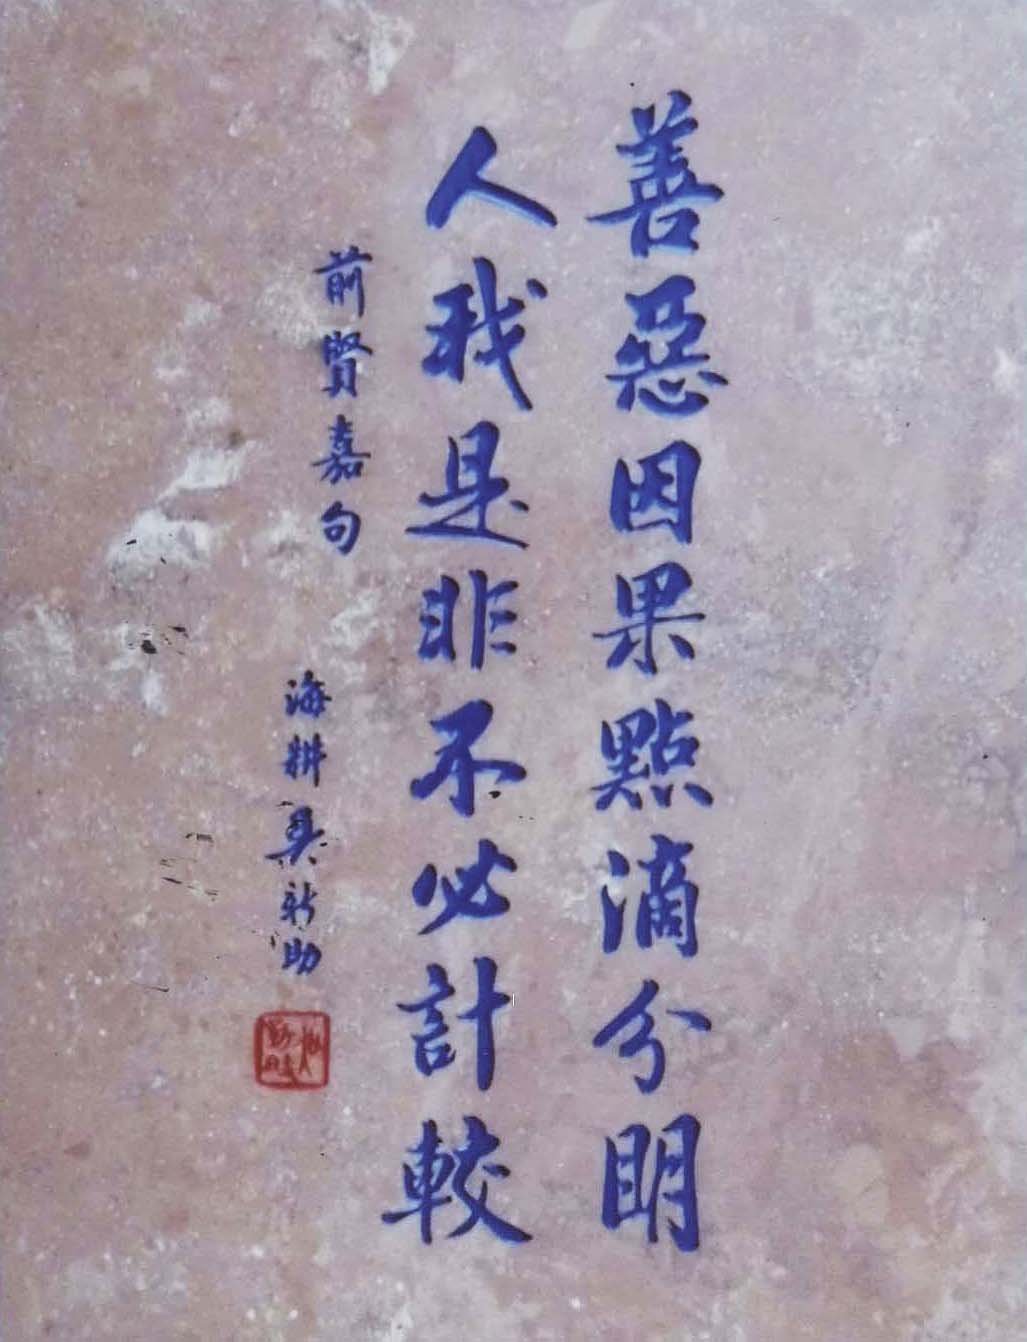 善惡因果點滴分明
人我是非不必計較
前賢嘉句
海耕吳新助